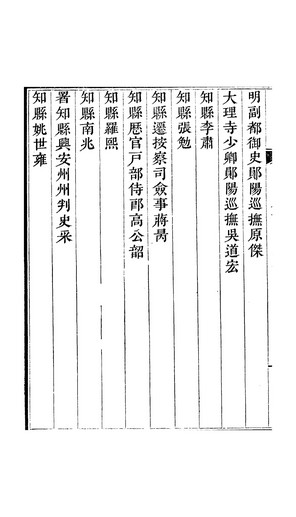 明副都御史鄖陽巡撫原傑
大理寺少卿鄖陽巡撫吳道宏
知縣李肅
知縣張勉
知縣遷按察司僉事蔣昺
知縣歷官戶部侍郎高公韶
知縣羅熙
知縣南兆
署知縣興安州州判史采
知縣姚世雍